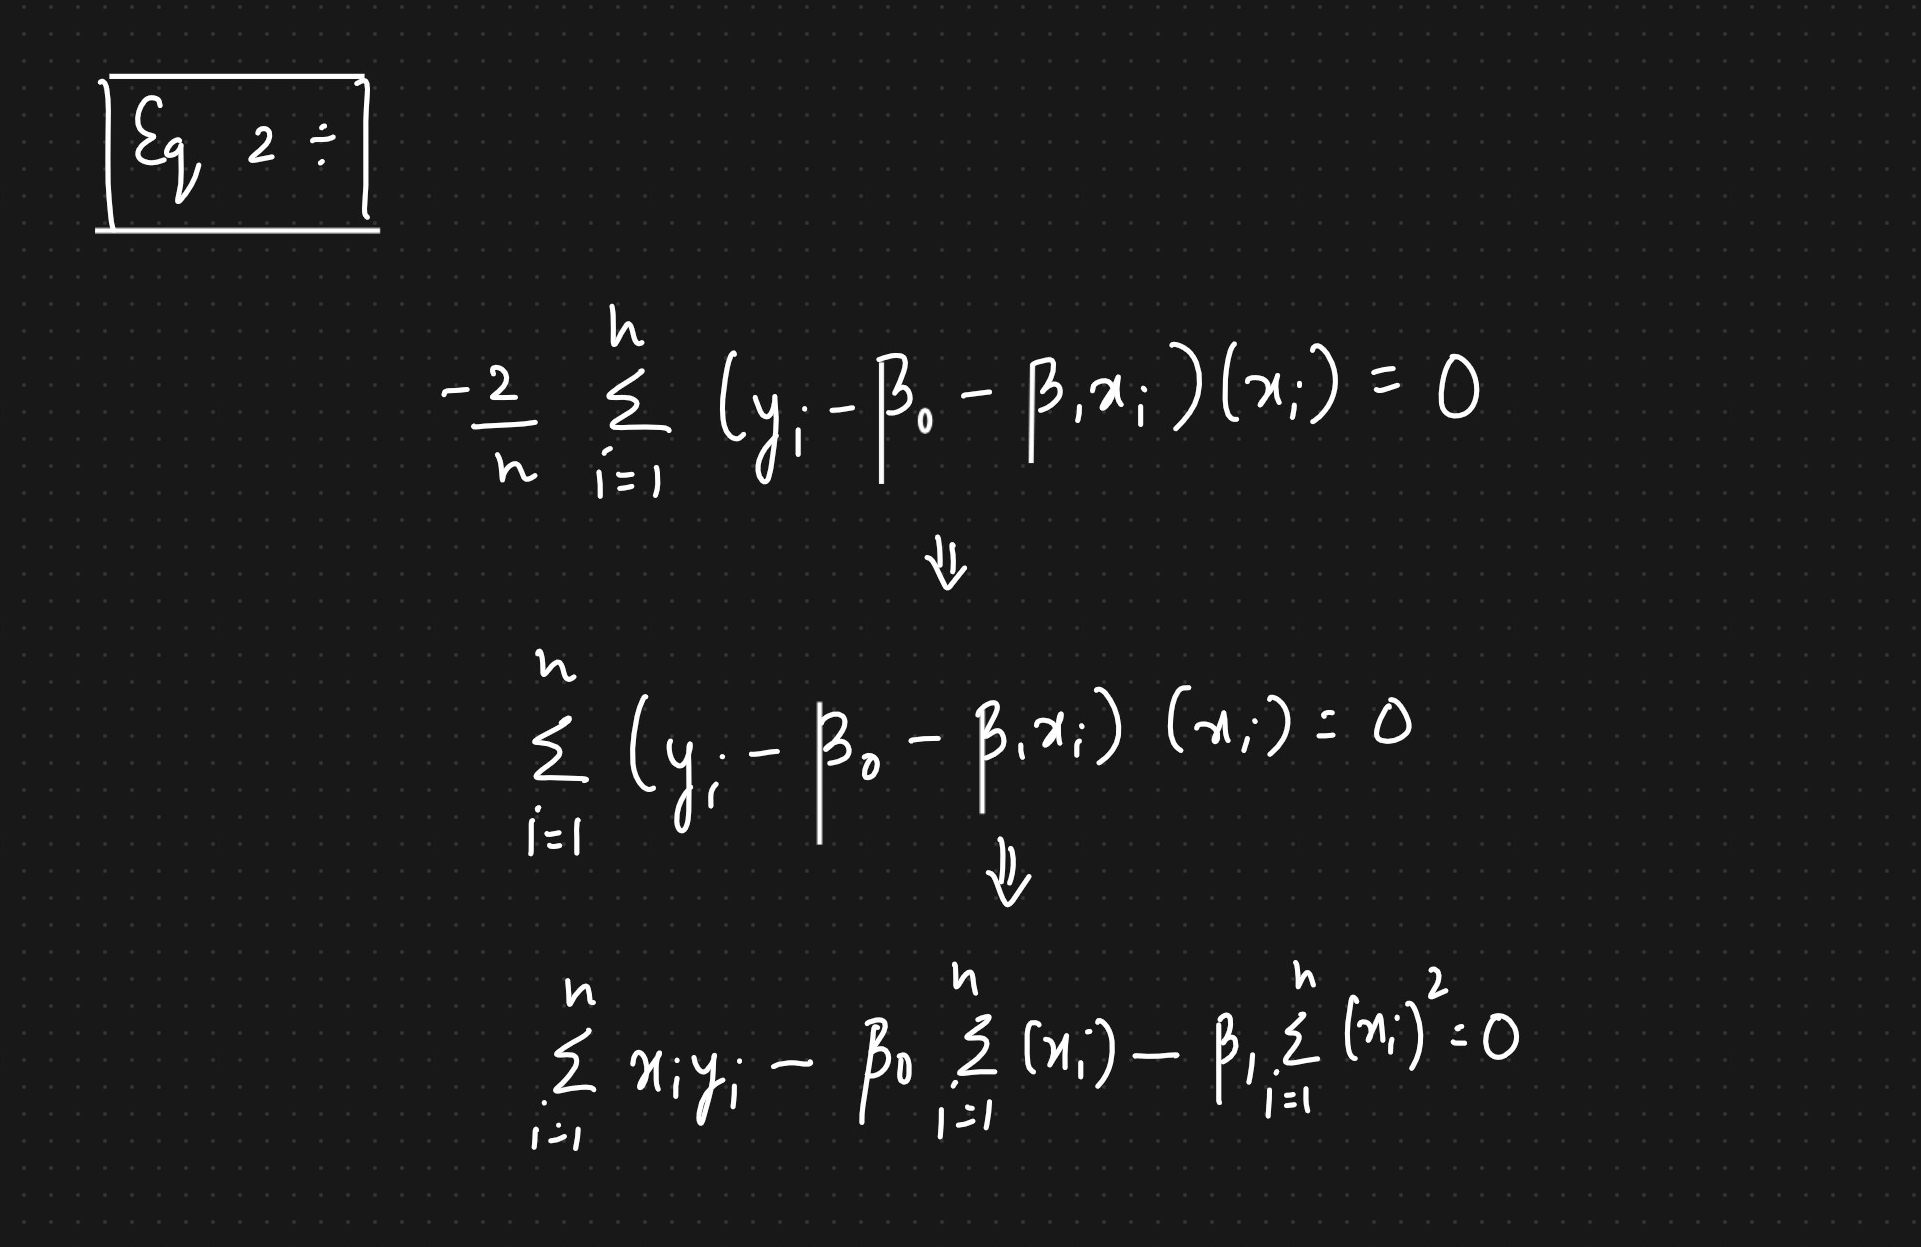 Eq 2 ÷
-2/n ∑_{i=1}^{n} (y_i - β_0 - β_1 x_i)(x_i) = 0
⇓
∑_{i=1}^{n} (y_i - β_0 - β_1 x_i) (x_i) = 0
⇓
∑_{i=1}^{n} x_i y_i - β_0 ∑_{i=1}^{n} (x_i) - β_1 ∑_{i=1}^{n} (x_i)^2 = 0